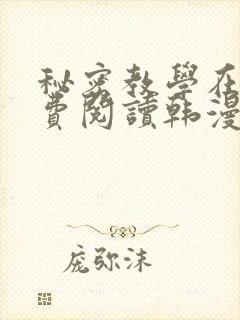 秘密教學在
費閱讀韓漫
庞弥沫